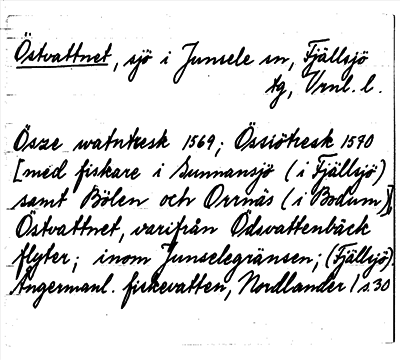 Östvattnet, sjö i Junsele sn, Fjällsjö
tg, Vrnl. l.
Ösze watntresk 1569; Össiötresk 1590
[med fiskare i Sunnansjö (i Fjällsjö)
samt Bölen och Orrnäs (i Bodum)]
Östvattnet, varifrån Ödsvattenbäck
flyter; inom Junselegränsen; (Fjällsjö).
Ångermanl. fiskevatten, Nordlander 1 s.30